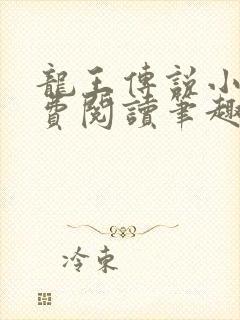 龍王傳說小
費閱讀筆趣
冷東